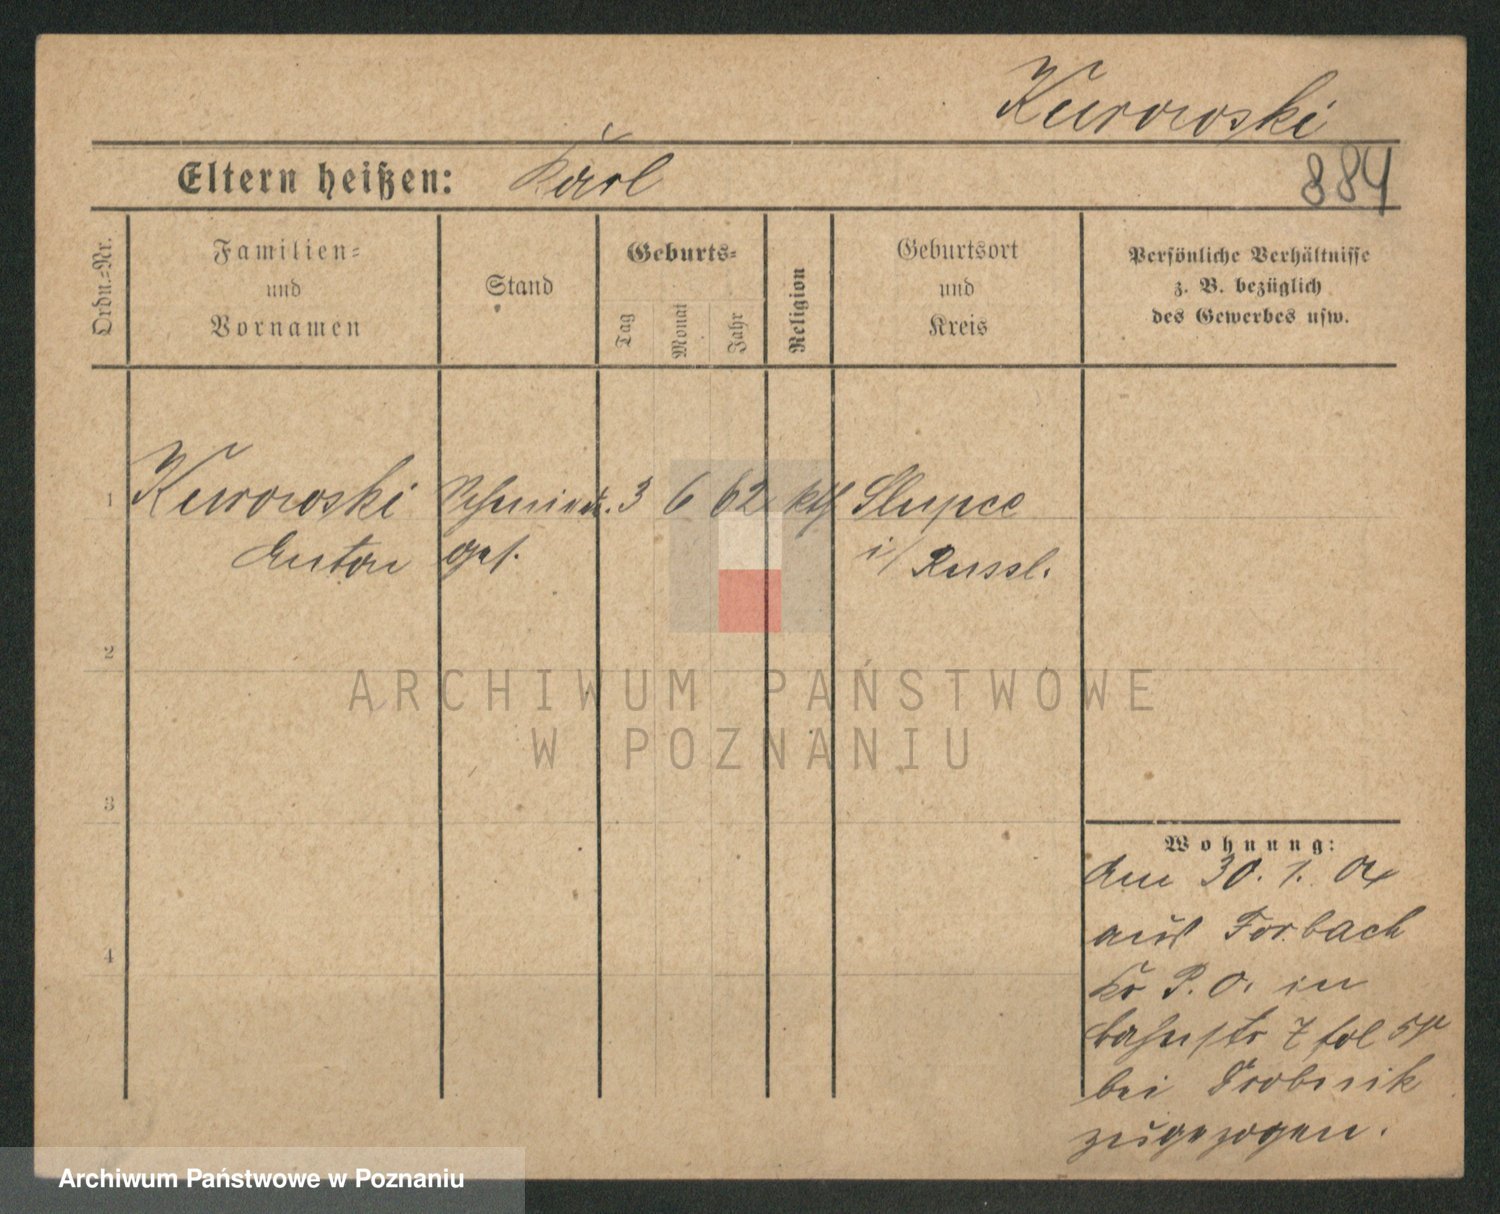 Kurowski
Eltern heißen: Karl
884
Ordn.=Nr.
Familien=
und
Vornamen
Stand
Geburts=
Tag
Monat
Jahr
Religion
Geburtsort
und
Kreis
Persönliche Verhältnisse
z. B. bezüglich
des Gewerbes usw.
1 Kurowski Schmiede. 3 6 62 kth Slupce
Anton ges. i/ Russl.
2
3
4
ARCHIWUM PAŃSTWOWE
W POZNANIU
Wohnung:
Am 30. 1. 04
aus Forbach
Kr P. O. in
bahnstr 7
bei
zugezogen.
Archiwum Państwowe w Poznaniu